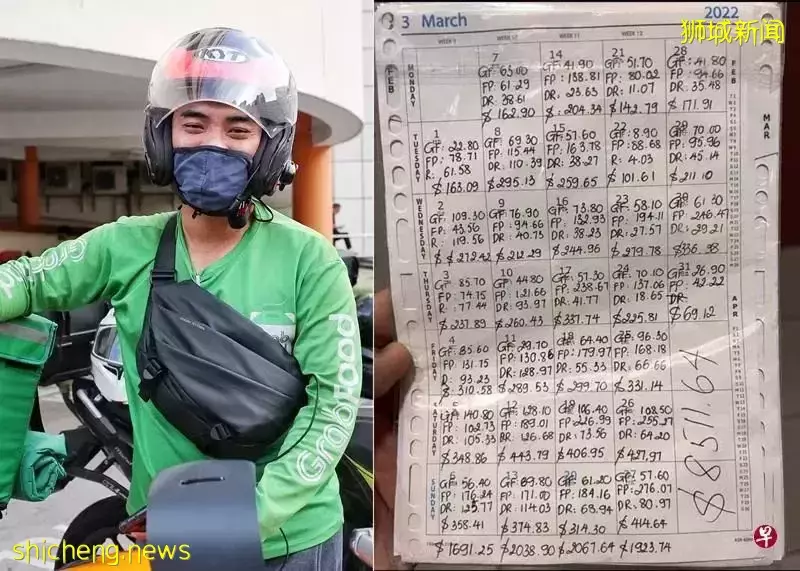 狮城新闻
KYT
GrabFood
shicheng.news
3 March
2022
WEEK 9
WEEK 10
WEEK 11
WEEK 12
FEB
FEB
MAR
APR
MONDAY
7
GF: 63.00
FP: 61.29
DR: 38.61
$ 162.90
14
GF: 41.90
FP: 138.81
DR: 23.63
$ 204.34
21
GF: 51.70
FP: 80.02
DR: 11.07
$ 142.79
28
GF: 41.80
FP: 94.66
DR: 35.48
$ 171.91
TUESDAY
1
GF: 22.80
FP: 78.71
R: 61.58
$163.09
8
GF: 69.30
FP: 115.44
DR: 110.39
$295.13
15
GF: 57.60
FP: 163.78
DR: 38.27
$259.65
22
GF: 8.90
FP: 88.68
R: 4.03
$ 101.61
29
GF: 70.00
FP: 95.96
DR: 45.14
$ 211.10
WEDNESDAY
2
GF: 109.30
FP: 43.56
R: 119.56
$ 272.42
9
GF: 76.90
FP: 94.66
DR: 40.73
$ 212.29
16
GF: 73.80
FP: 132.93
DR: 38.23
$244.96
23
GF: 58.10
FP: 194.11
DR: 27.57
$279.78
GF: 61.30
FP: 246.47
DR: 29.21
$336.98
THURSDAY
3
GF: 85.70
FP: 74.75
R: 77.44
$237.89
10
GF: 44.80
FP: 121.66
DR: 93.97
$260.43
17
GF: 57.30
FP: 238.67
DR: 41.77
$337.74
24
GF: 70.10
FP: 137.06
DR: 18.65
$225.81
31
GF: 26.90
FP: 42.22
DR:
$69.12
FRIDAY
4
GF: 85.60
FP: 131.75
R: 93.23
$ 310.58
11
GF: 29.70
FP: 130.86
DR: 128.97
$289.53
18
GF: 64.40
FP: 179.97
DR: 55.33
$299.70
25
GF: 96.30
FP: 168.18
DR: 66.66
$331.14
SATURDAY
5
GF: 140.80
FP: 102.73
DR: 105.33
$348.86
12
GF: 128.10
FP: 189.01
DR: 126.68
$ 443.79
19
GF: 106.40
FP: 226.99
DR: 73.56
$ 406.95
26
GF: 108.50
FP: 255.27
DR: 64.20
$ 427.97
SUNDAY
6
GF: 56.40
FP: 176.24
DR: 125.77
$358.41
13
GF: 89.80
FP: 171.00
DR: 114.03
$ 374.83
20
GF: 61.20
FP: 184.16
DR: 68.94
$ 314.30
27
GF: 57.60
FP: 276.07
DR: 80.97
$ 414.64
$8511.64
$1691.25
$2038.90
$2067.64
$1923.74
早